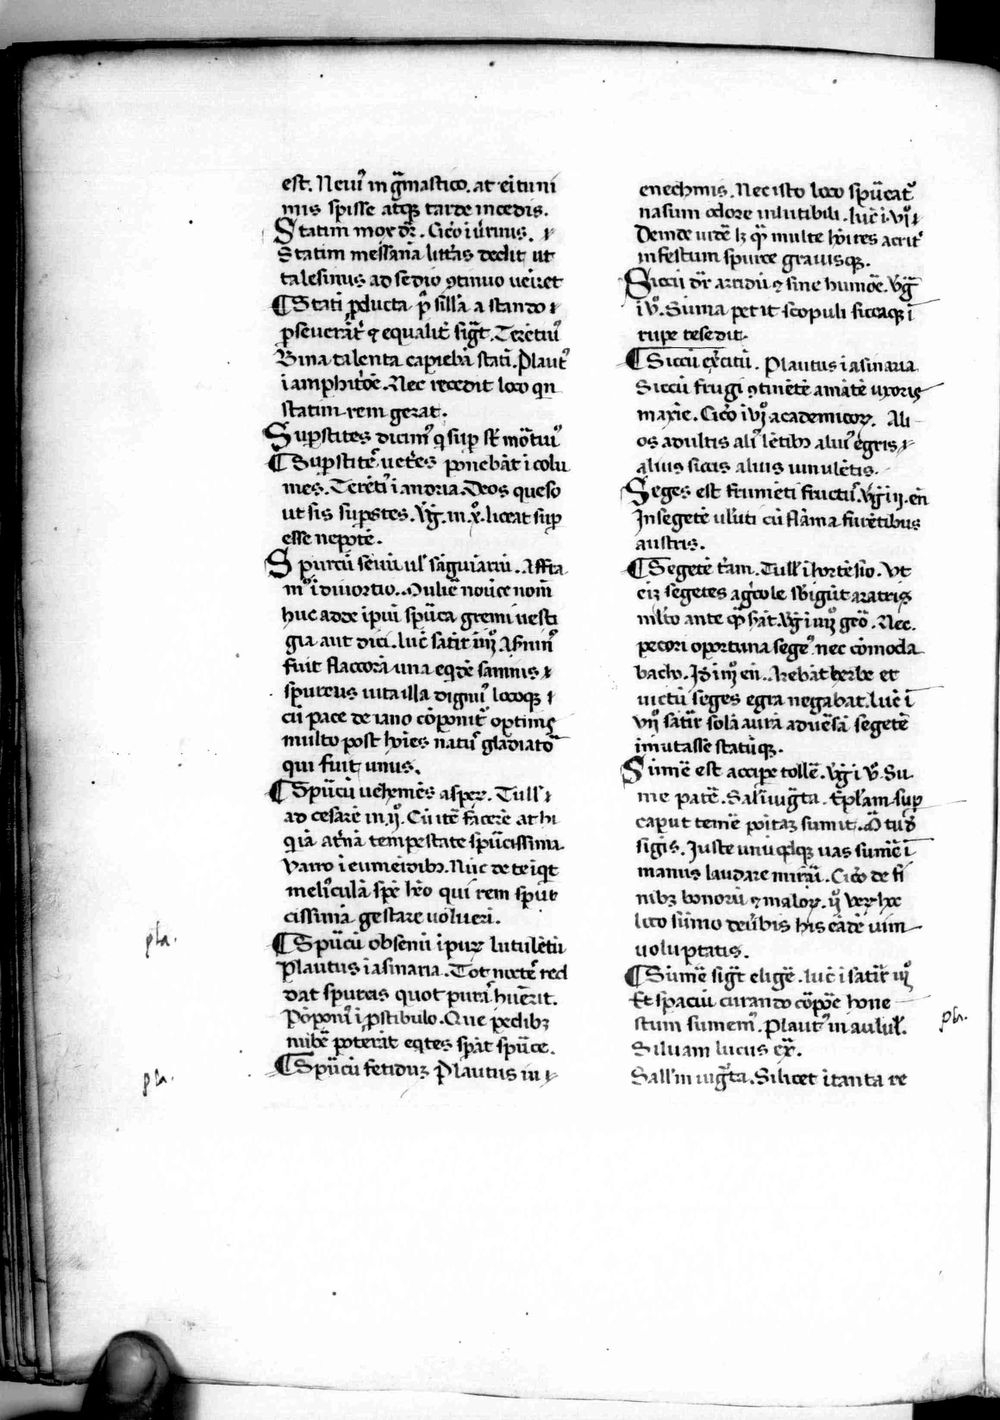 est. Neui᷒ in g̃mastico. at ei tu ni
mis spisse atq̧ tarde incedis.
Statim mox dr̃. Cic̃o i u̾rinis.
Statim messana lr̃as dedit ut
talesinus ad sedio ꝯtinuo veiret
¶ Stati ꝑducta p̃ silla a stando
ꝑseuerãt̾ ⁊ equalit̾ sigt̃. Terẽtiu᷒
Bina talenta capiebã stati. Plaut᷒
i amphit̾õe. Nec recedit loco qn
statim rem gerat.
Supstites dicim᷒ q sup st̃ mortui᷒
¶ Supstite̾ uet̾es ponebãt i colu
mes. Terẽti᷒ i andria. Deos queso
ut sis supstes. v̾g̃. in x̊. liceat sup
esse nepotẽ.
Spurcũ seuũ ul̾ sãguiariũ. Affra
ni᷒ i diuortio. Muliẽ nouẽce nom̃
huc adde ipui spũca gremi uesti
gia aut dici. luc̃ satir̃ iiii̊ Asinin᷒
fuit flaccorũ una eqdẽ samnis
spurcus uita illa dignu᷒ locoq̧
cũ pace de iano cõponit᷒ optim᷒
multo post hoies natu᷒ gladiatõ
qui fuit unus.
¶ Spũcũ uehemẽs asper. Tull᷒
ad cesarẽ in ii̊. Cũ itẽ fãcere at hi
quia at̾na tempestate spũcissima
Varro i eumeidibꝫ. Nũc de te iqt
meliculã spẽ heo qui rem spur
cissima gestare uolueri.
¶ Spũcũ obsenũ ipuꝝ lutulẽtũ
Plautus i asinaria. Tot nocte̾ red
dat spurcas quot puri᷒ huẽrit.
Põponi᷒ i ꝓstibulo. Que pedibꝫ
nubẽ poterãt eqtes spãt spũce.
¶ Spũcũ fetiduꝫ Plautus in
pla.
pla.
enechmis. Nec isto loco spũcat᷒
nasum odore inlutibili. luc̃ i vi̊
Deinde uidẽ lꝫ q̃ multe hoies acrit̾
infestum spurce grauisq̧.
Siccũ dr̃ aridũ ⁊ sine humoẽ. v̾g̃
i v̊. Suma petit scopuli siccaq̧ i
rupe resedit.
¶ Siccũ ex̃citũ. Plautus i asinaria
Siccũ frugi ꝯtinẽtẽ amãtẽ uxoris
maxie. Cic̃o i vi̊ academicoꝝ. Ali
os adultis ali᷒ lẽtibꝫ aliu᷒ egris
alius siccis alius uinulẽtis.
Seges est frumẽti fructu᷒. v̾g̃ ii. en̄
In segetẽ uluti cũ flãma furẽtibus
austris.
¶ Segetẽ t̃am. Tull᷒ i hortẽsio. Vt
ei᷒ segetes ag̾cole sbigũt aratris
mlto ante q̃ sãt. v̾g̃ i iiii̊ geõ. Nec
pecori oportuna sege᷒ nec comoda
bacho. Id iii̊ en̄. Arebãt herbe et
uictũ seges egra negabat. luc̃ i
vii̊ satir̃ solã aurã aduẽsã segetẽ
imutasse statũq̧.
Sumẽ est accipe tollẽ. v̾g̃ i v̊. Su
me patẽ. Sal᷒ i iug̃ta. Ep̃lam sup
caput temẽ poitaꝫ sumit. M tul̾ d̊
sigis. Juste unũ qdq̧ uas sumẽ i
manus laudare mirari. Cic̃o de fi
nibꝫ bonorũ ⁊ maloꝝ. ii̊ veꝝ hoc
loco sumo deũbis his eãdẽ uim
voluptatis.
¶ Sumẽ sigt̃ eligẽ. luc̃ i satir̃ iii̊
Et spaciũ curando cõpoẽ hone
stum sumem᷒. Plaut᷒ in aulul̾.
Siluam lucus ex̃.
Sall᷒ in iug̃ta. Silicet i tanta re
pla.